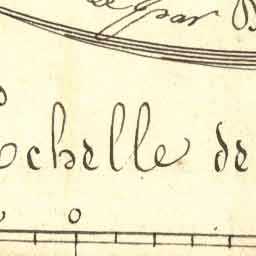 par
Echelle de
0